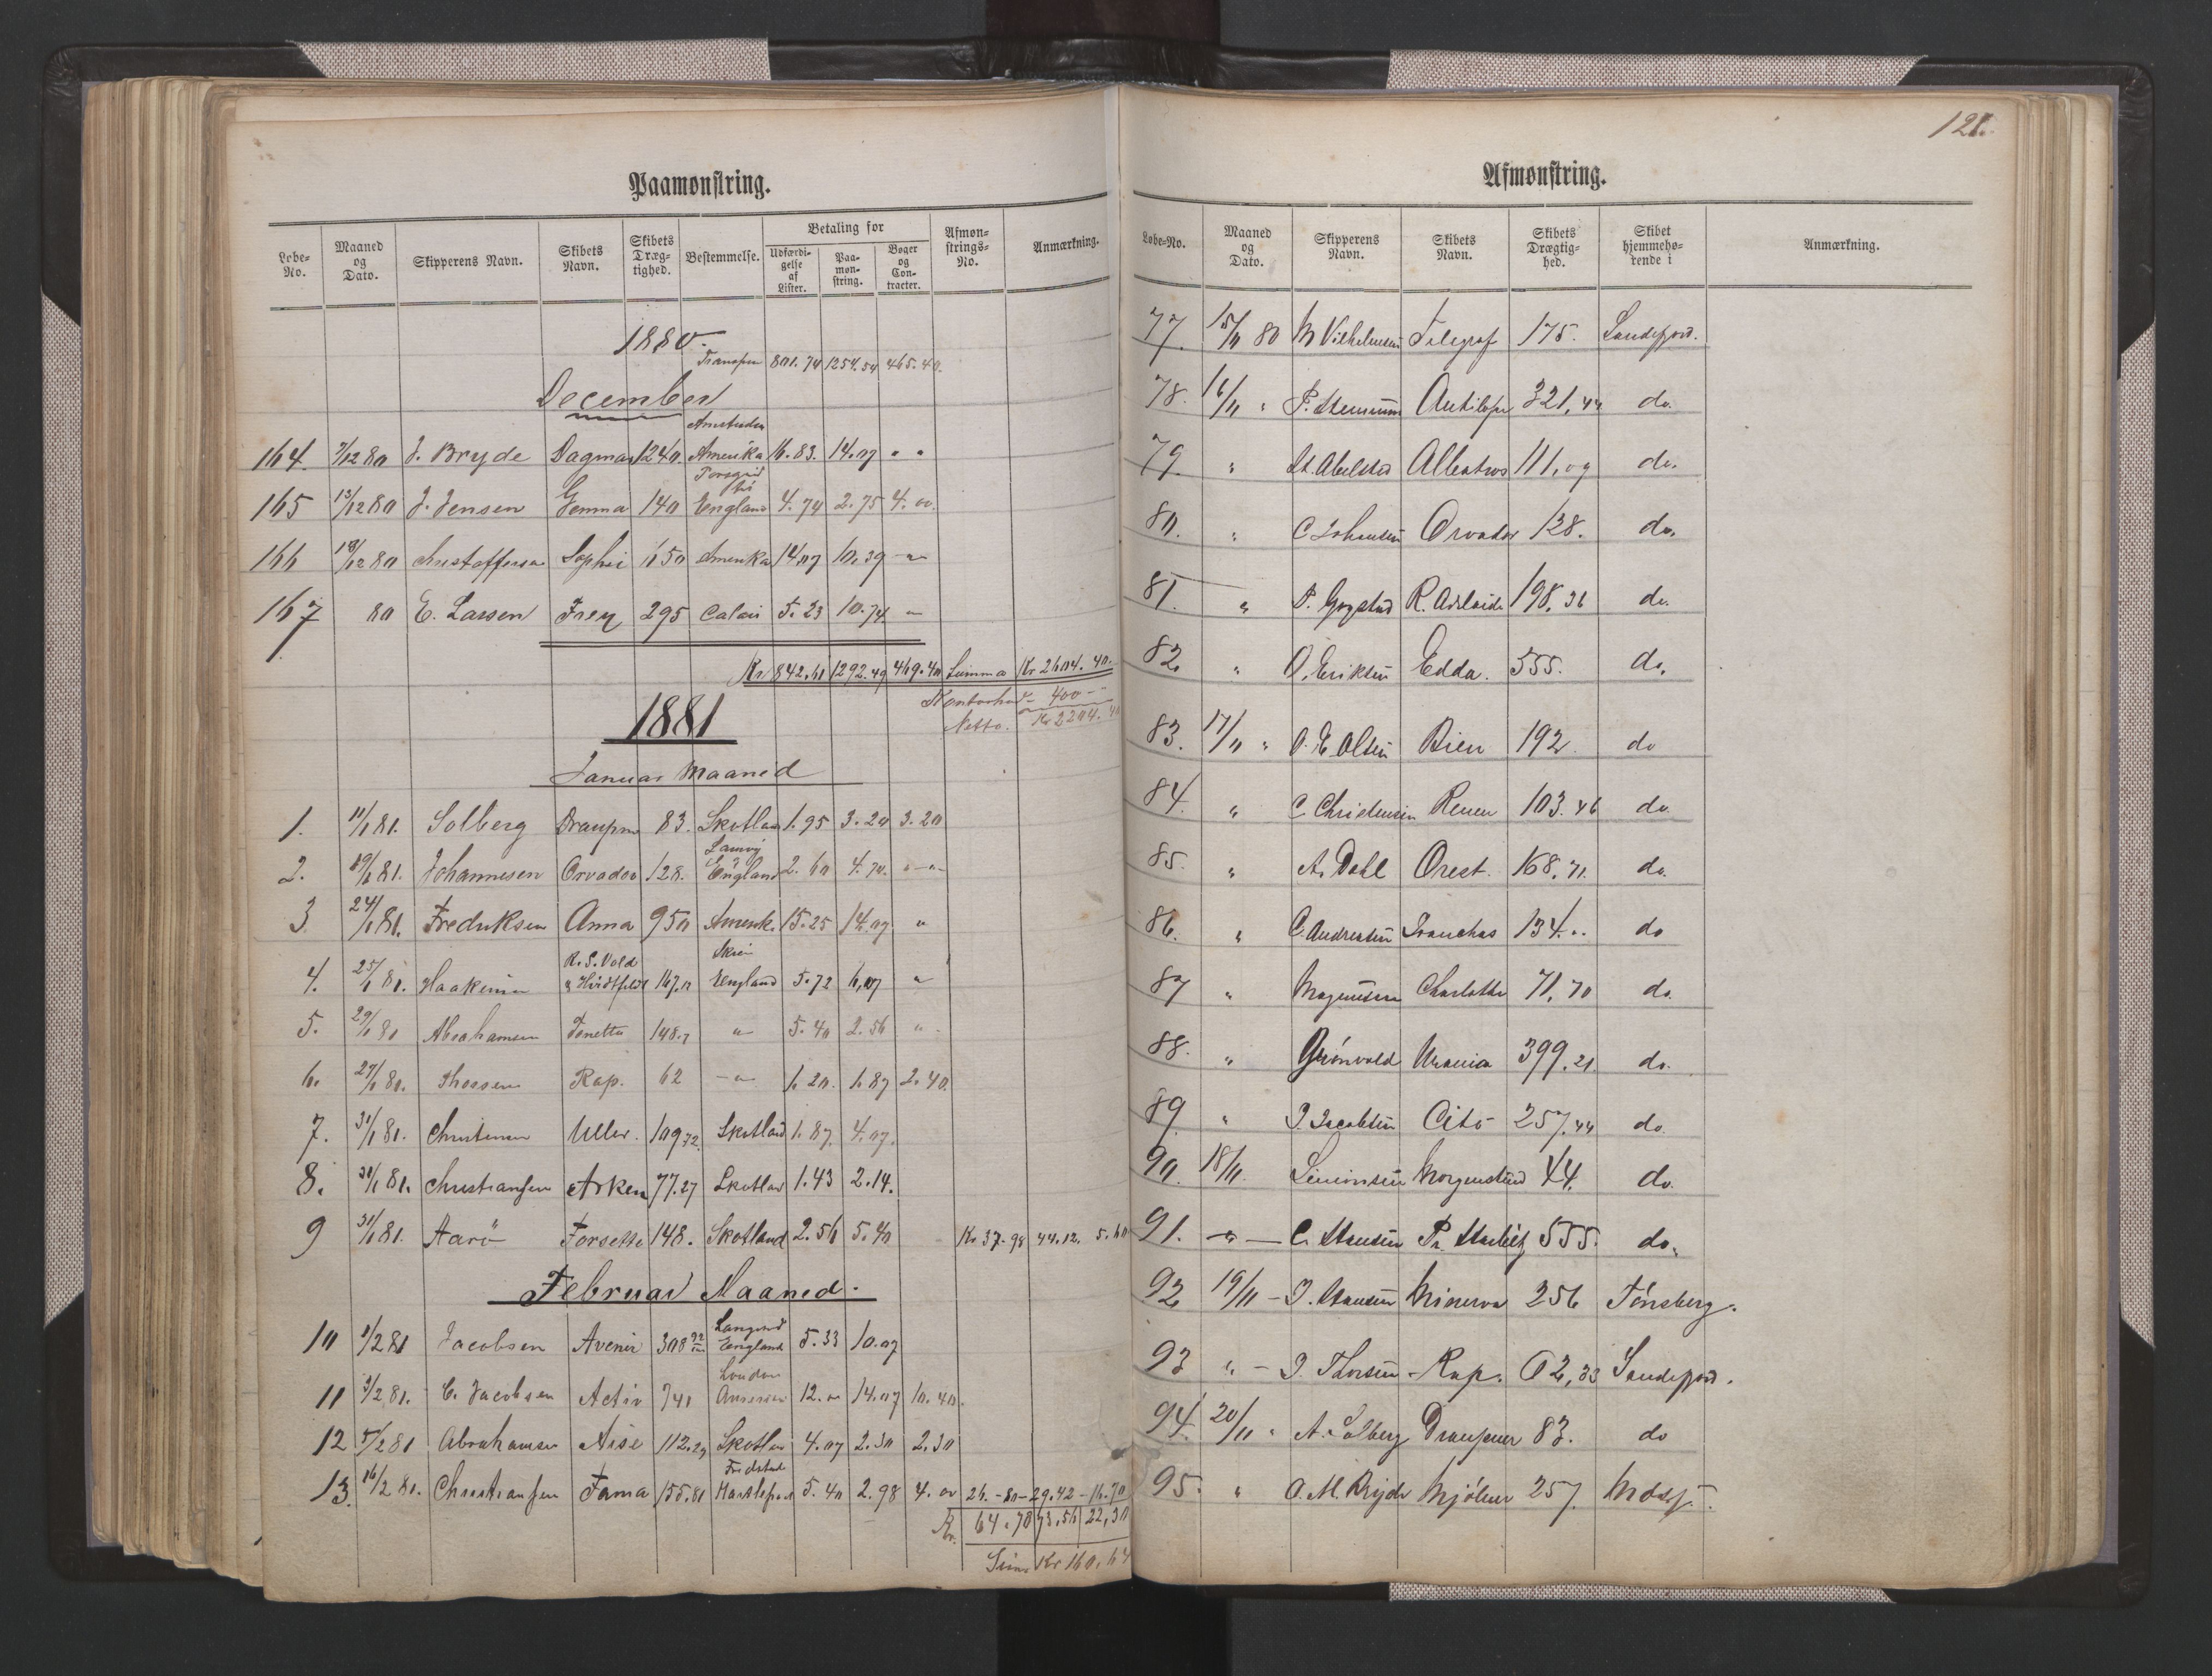 Paamønstring.
Løbe-No. Maaned og Dato. Skipperens Navn. Skibets Navn. Skibets Dræg-tighed. Bestemmelse. Betaling for Udfærdi-gelse af Lister. Paa-møn-string. Bøger og Con-tracter. Afmøn-strings-No. Anmærkning.
1880.
Transport 801.74 1254.54 465.40.
December
Amsterdam
164. 7/12 80 J. Bryde Dagmar 1240. Amerika 16.83. 14.07 " "
165 13/12 80 J. Jensen Gemma 140 England 4.74 2.75 4.00.
166 18/12 80 Christoffersen Sophie 1050 Amerika 14.07 10.39 -"-
167 80 E. Larsen Frey 295 Calais 5.23 10.74 "
Kr 842.61 1292.49 469.40 Summa Kr 2604.40.
Kontorhold - 400 -
Netto. Kr 2204.40
1881
Januar Maaned
1. 11/1 81. Solberg Draupner 83. Skotland 1.95 3.20 3.20
2. 20/1 81. Johannesen Orvador 128. England 2.60 4.70. "-"-
3. 24/1 81. Fredriksen Anna 950 Amerika 15.25 14.07 "
R. S. Vold Skien
4. 25/1 81. Haakensen & Hvidtfeldt 167.0 England 5.72 6.07 "
5. 29/1 80 Abrahamsen Tenetta 148.7 " 5.40 2.56 "-
6. 27/1 80. Thorsen Rap. 62 -"- 1.20. 1.87 2.40.
7. 31/1 81. Christensen Uller. 109.72. Skotland 1.87. 4.07.
8. 31/1 81. Christiansen Arken 77.27 Skotland 1.43 2.14.
9 31/1 81. Aarö Forsette 148. Skotland 2.56 5.40 Kr 37.98 44.12. 5.60
Februar Maaned.
10 1/2 81 Jacobsen Avenir 308 England 5.33 10.07
London
11 3/2 81. C. Jacobsen Activ 741 12." 14.07 10.40.
12 5/2 81 Abrahamsen Nise 112.29 Skotland 4.07 2.30 2.30
Fredstad
13. 16/2 81. Christiansen Fama 155.81 Hartlepool 5.40 2.98 4.00 26.-80-29.42-16.70
Kr. 64.78 73.56 22.30
Sum Kr 160.64
121.
Afmønstring.
Løbe-No. Maaned og Dato. Skipperens Navn. Skibets Navn. Skibets Drægtig-hed. Skibet hjemmehø-rende i Anmærkning.
77. 15/11 80 M Vilhelmsen Telegraf 175. Sandefjord.
78. 16/11 " P. Antilope 321,44 do.
79. " Abelsted Albatros 111,09 do.
80. " C Johansen Orvador 128. do.
81. " P. Gogstad R. Adelaide 198,36 do.
82. " O. Eriksen Edda. 555. do.
83. 17/11 " O. E. Olsen Bien 192. do
84. " C Christensen Renen 103.46 do.
85. " A. Dahl Orest. 168,71. do.
86. " C. Andreasen 134." do
87 " Magnussen Charlotte 71,70 do.
88. " Grönvold Urania 399.21 do.
89. " J. Jacobsen Cito 257.44 do.
90. 18/11. Simonsen Morgenstund 44. do.
91. -"- C. Hansen Pr. 555. do.
92 19/11 - J. Hansen Minerva 256 Tönsberg.
93 " - J. Thorsen - Rap. 62,33 Sandefjord.
94. 20/11 " A. Solberg Draupner 83. do
95. " O. M. Bryde Mjölner 257. Moss.